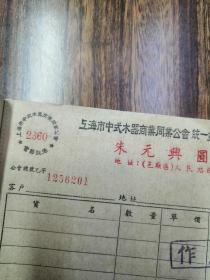 上海市中式木器商業同業公會 統一
2360
朱元興圓
地址：(邑廟區)人民路
公會總號乙字 1256201
客戶 地址
貨名 數量 單價
作